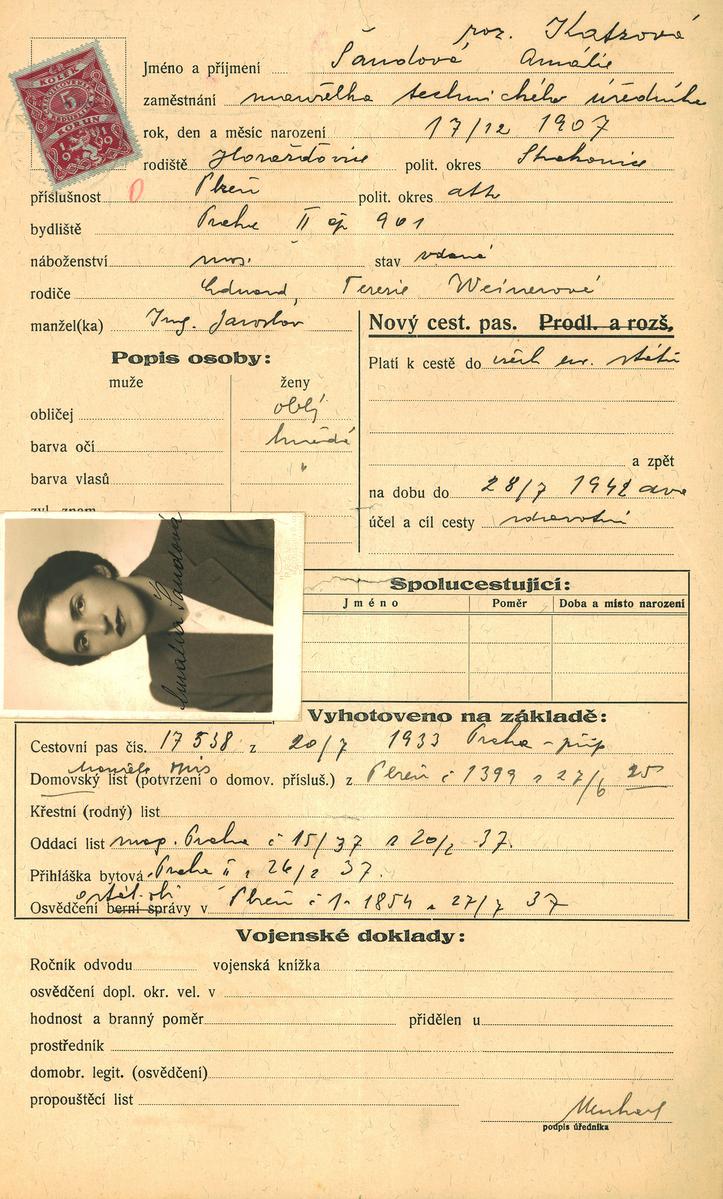 roz. Katzová
Jméno a příjmení Šandová Amálie
zaměstnání manželka technického úředníka
rok, den a měsíc narození 17/12 1907
rodiště Horažďovice polit. okres Strakonice
příslušnost 0 Plzeň polit. okres
bydliště Praha II čp 901
náboženství mos. stav vdaná
rodiče Eduard, Terezie Weinerové
manžel(ka) Ing. Jaroslav
Nový cest. pas. Prodl. a rozš.
Popis osoby:
muže ženy
obličej oblý
barva očí hnědé
barva vlasů "
Platí k cestě do všech ev. států
a zpět
na dobu do 28/7 1942
účel a cíl cesty zdravotní
Amálie Šandová
Spolucestující:
Jméno Poměr Doba a místo narození
Vyhotoveno na základě:
Cestovní pas čís. 17538 z 20/7 1933 Praha
Domovský list (potvrzení o domov. přísluš.) z Plzeň č 1399 z 27/6 25
Křestní (rodný) list
Oddací list Praha č 15/37 z 20/2 37.
Přihláška bytová Praha II z 26/2 37.
Osvědčení berní správy v Plzeň č 1854 z 27/7 37
Vojenské doklady:
Ročník odvodu vojenská knížka
osvědčení dopl. okr. vel. v
hodnost a branný poměr přidělen u
prostředník
domobr. legit. (osvědčení)
propouštěcí list
podpis úředníka
KOLEK
5
KORUN